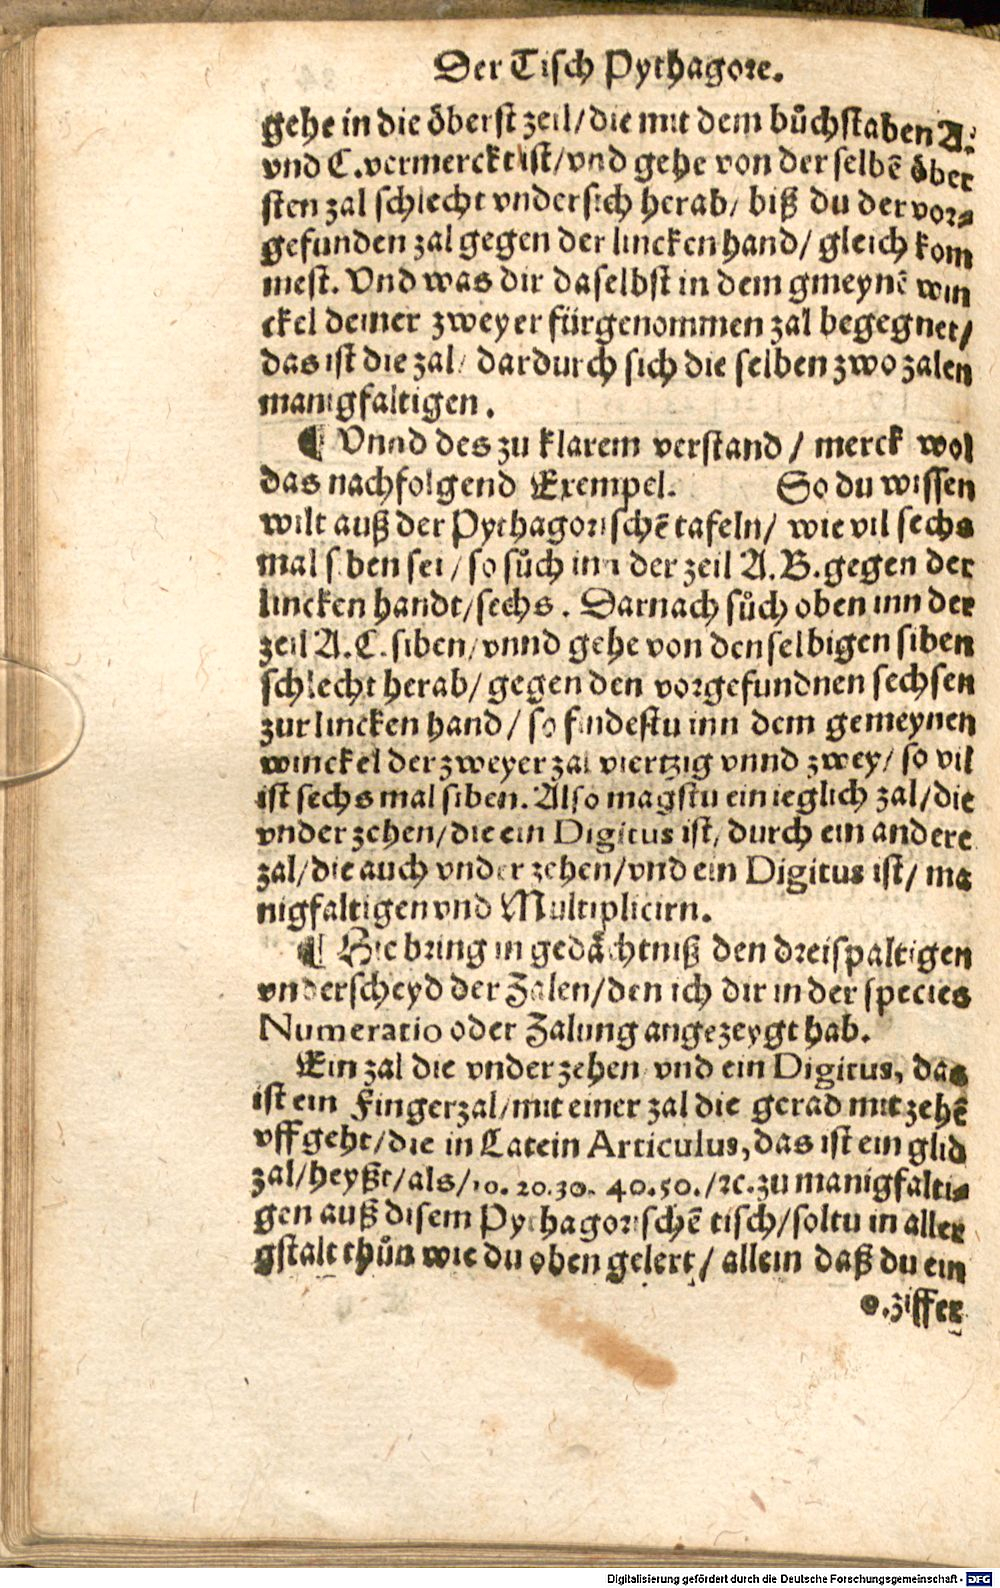 Der Tisch Pythagore.
gehe in die öberst zeil/die mit dem bůchstaben A.
vnd C.vermerckt ist/vnd gehe von der selbẽ öber
sten zal schlecht vndersich herab/ biß du der vor⸗
gefunden zal gegen der lincken hand/ gleich kom
mest. Vnd was dir daselbst in dem gmeynẽ win
ckel deiner zweyer fürgenommen zal begegnet/
das ist die zal/ dardurch sich die selben zwo zalen
manigfaltigen.
¶ Vnnd des zu klarem verstand / merck wol
das nachfolgend Exempel. So du wissen
wilt auß der Pythagorischẽ tafeln/ wie vil sechs
mal siben sei / so sůch inn der zeil A.B.gegen der
lincken handt/sechs. Darnach sůch oben inn der
zeil A.C.siben/vnnd gehe von denselbigen siben
schlecht herab/ gegen den vorgefundnen sechsen
zur lincken hand/ so findestu inn dem gemeynen
winckel der zweyer zal viertzig vnnd zwey/ so vil
ist sechs mal siben. Also magstu ein ieglich zal/die
vnder zehen/die ein Digitus ist/ durch ein andere
zal/die auch vnder zehen/vnd ein Digitus ist/ ma
nigfaltigen vnd Multiplicirn.
¶ Hie bring in gedåchtniß den dreispaltigen
vnderscheyd der Zalen/den ich dir in der species
Numeratio oder Zalung angezeygt hab.
Ein zal die vnder zehen vnd ein Digitus, das
ist ein Fingerzal/mit einer zal die gerad mit zehẽ
vffgeht/die in Latein Articulus, das ist ein glid
zal/heyßt/als/10. 20.30. 40.50./ꝛc.zu manigfalti⸗
gen auß disem Pythagorischẽ tisch/soltu in aller
gstalt thůn wie du oben gelert/ allein daß du ein
0.ziffer
Digitalisierung gefördert durch die Deutsche Forschungsgemeinschaft - DFG